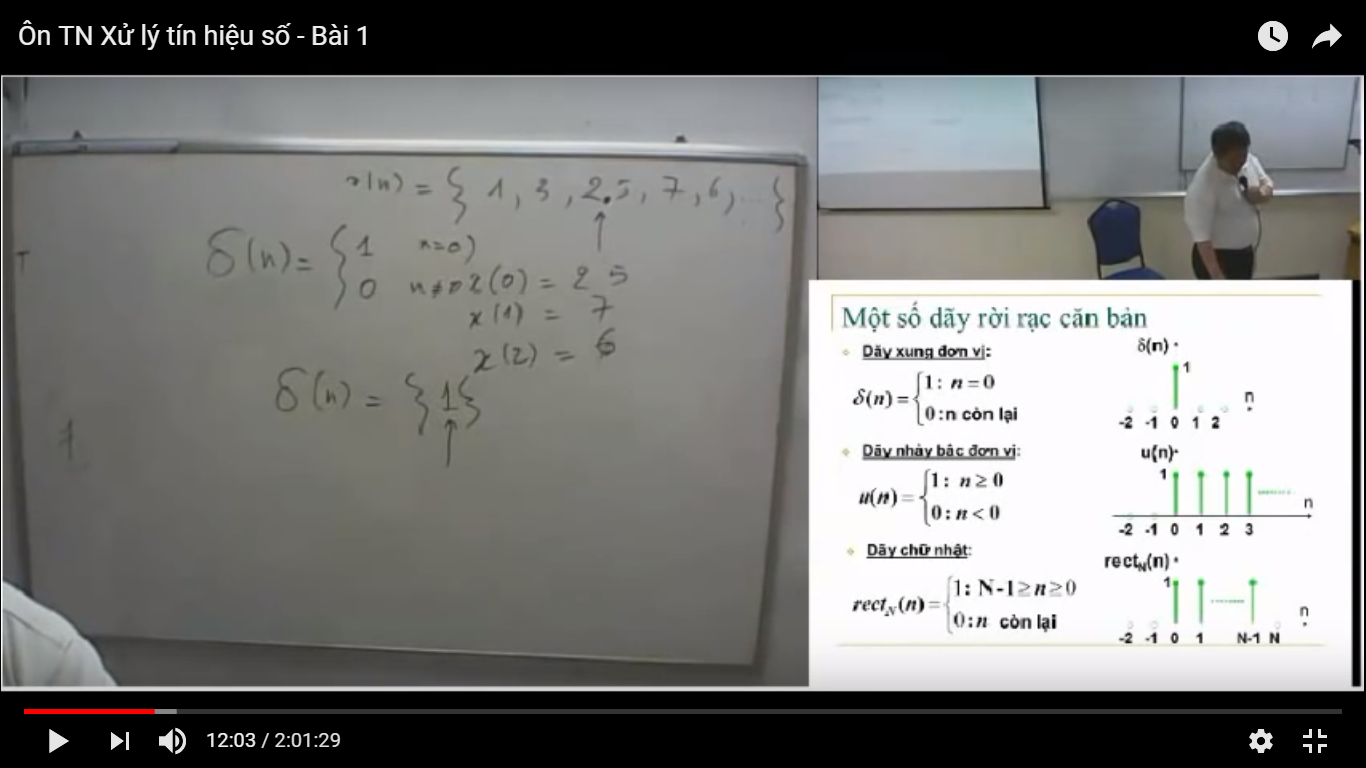 Ôn TN Xử lý tín hiệu số - Bài 1
x(n) = { 1, 3, 2.5, 7, 6, ... }
↑
δ(n) = { 1 n=0
0 n≠0
x(0) = 2 5
x(1) = 7
x(2) = 6
δ(n) = { 1 }
↑
Một số dãy rời rạc căn bản
Dãy xung đơn vị:
δ(n) = { 1 : n = 0
0 : n còn lại
δ(n)
1
n
-2 -1 0 1 2
Dãy nhảy bậc đơn vị:
u(n) = { 1 : n ≥ 0
0 : n < 0
u(n)
1
n
-2 -1 0 1 2 3
Dãy chữ nhật:
rectN(n) = { 1: N-1 ≥ n ≥ 0
0 : n còn lại
rectN(n)
1
n
-2 -1 0 1 N-1 N
12:03 / 2:01:29